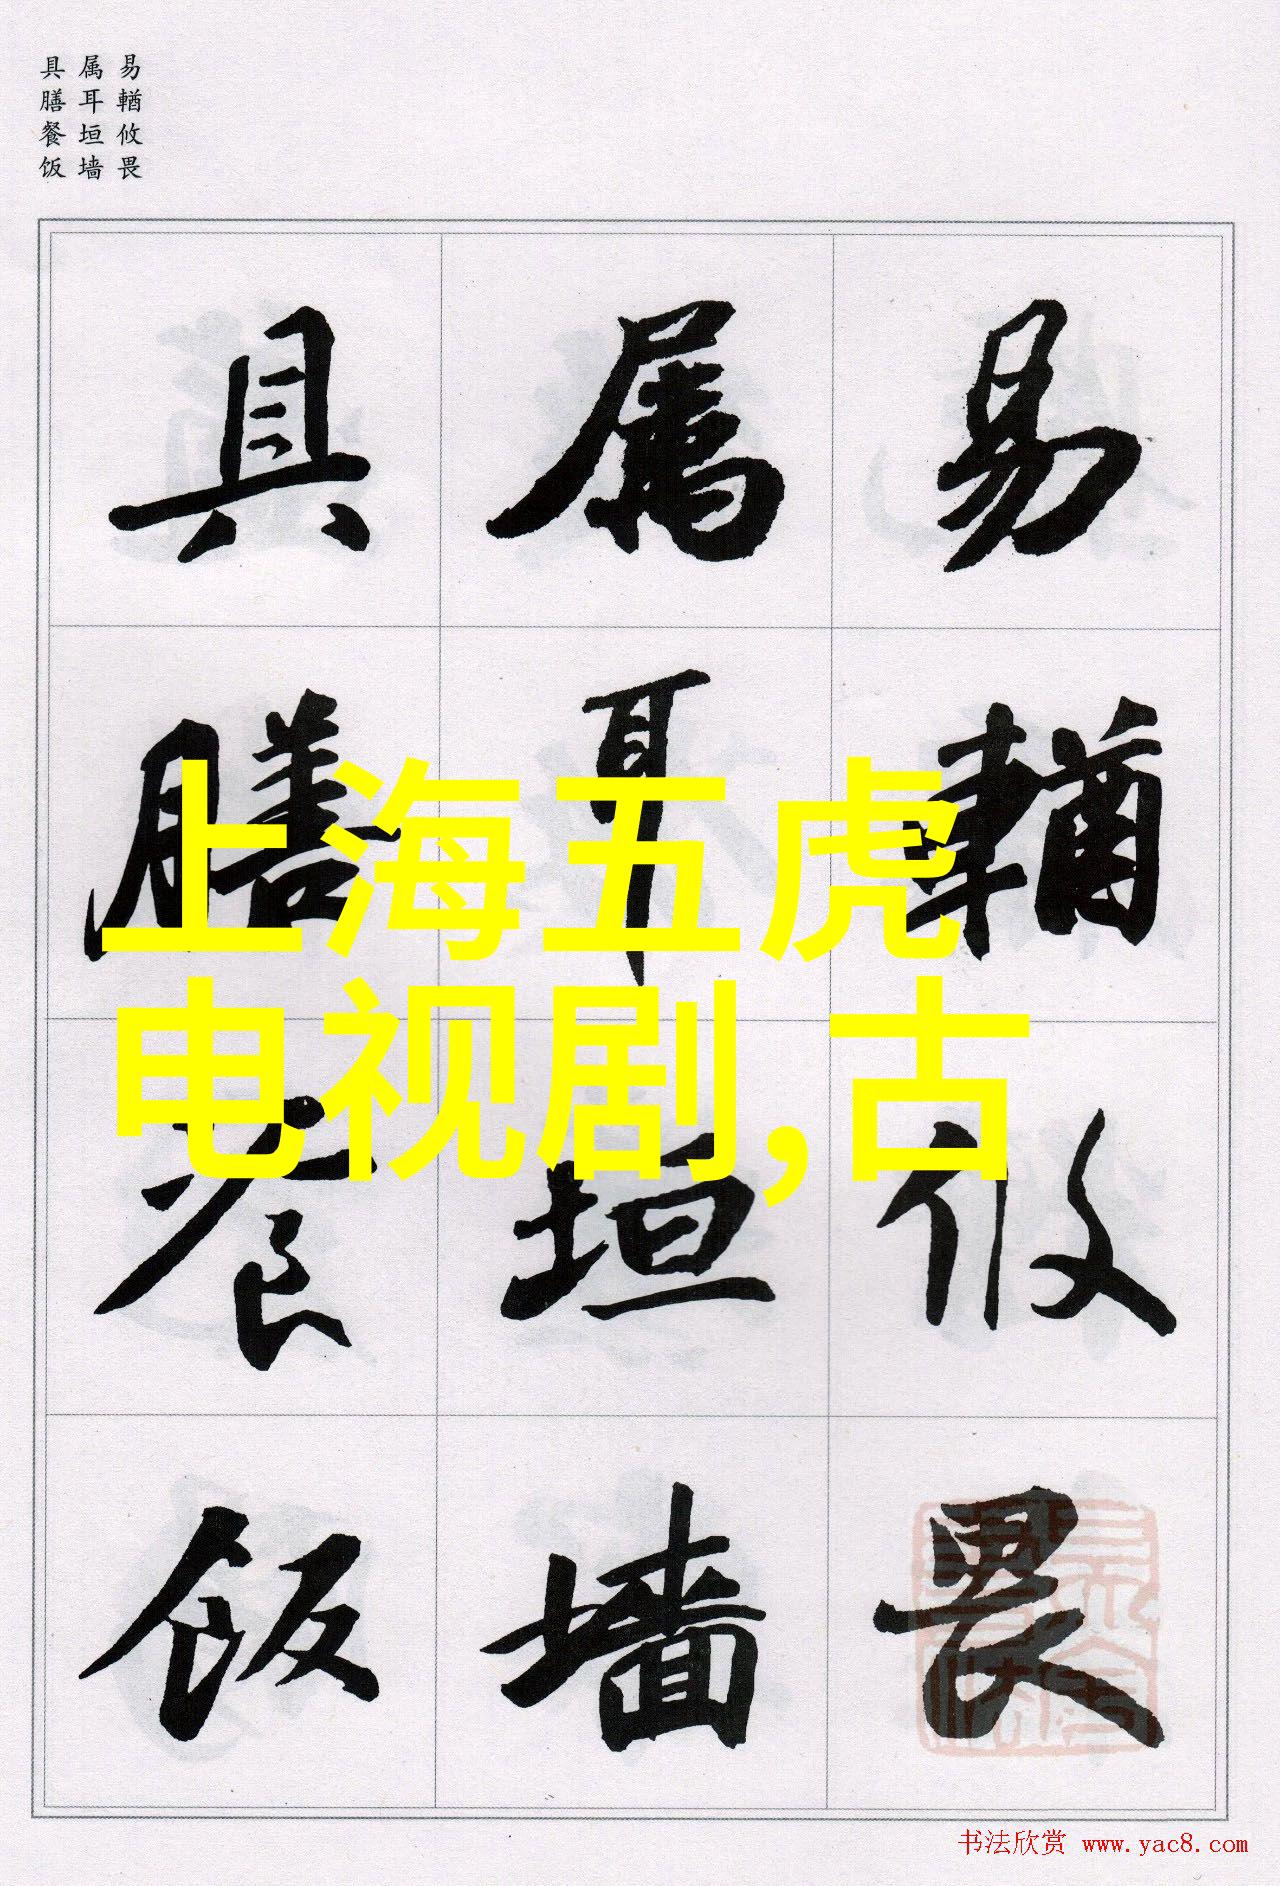 易輶攸畏
属耳垣墙
具膳餐饭
易輶攸畏
属耳垣墙
具膳餐饭
上海五虎
电视剧,古
书法欣赏 www.yac8.com